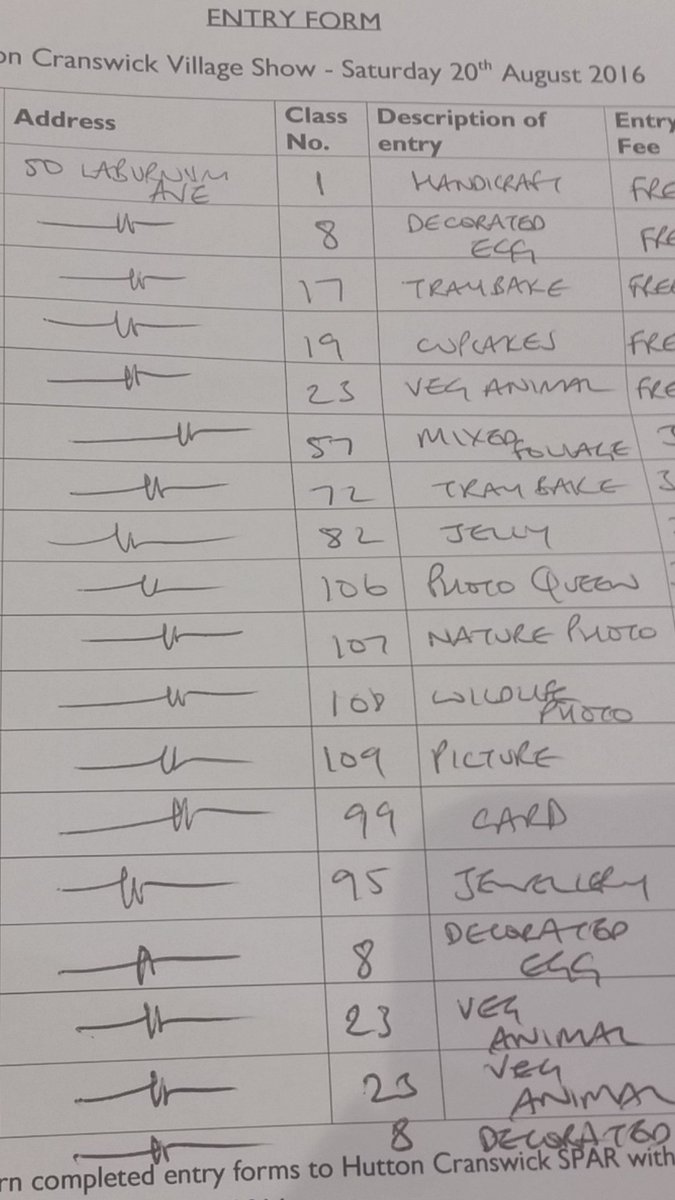 ENTRY FORM
on Cranswick Village Show - Saturday 20th August 2016
Address Class No. Description of entry Entry Fee
50 LABURNUM AVE 1 HANDICRAFT FRE
— 〃 — 8 DECORATED EGG FRE
— 〃 — 17 TRAYBAKE FREE
— 〃 — 19 CUPCAKES FRE
— 〃 — 23 VEG ANIMAL FRE
— 〃 — 57 MIXED FOLIAGE 3
— 〃 — 72 TRAYBAKE 3
— 〃 — 82 JELLY
— 〃 — 106 PHOTO QUEEN
— 〃 — 107 NATURE PHOTO
— 〃 — 108 WILDLIFE PHOTO
— 〃 — 109 PICTURE
— 〃 — 99 CARD
— 〃 — 95 JEWELLERY
— 〃 — 8 DECORATED EGG
— 〃 — 23 VEG ANIMAL
— 〃 — 23 VEG ANIMAL
— 〃 — 8 DECORATED
rn completed entry forms to Hutton Cranswick SPAR with